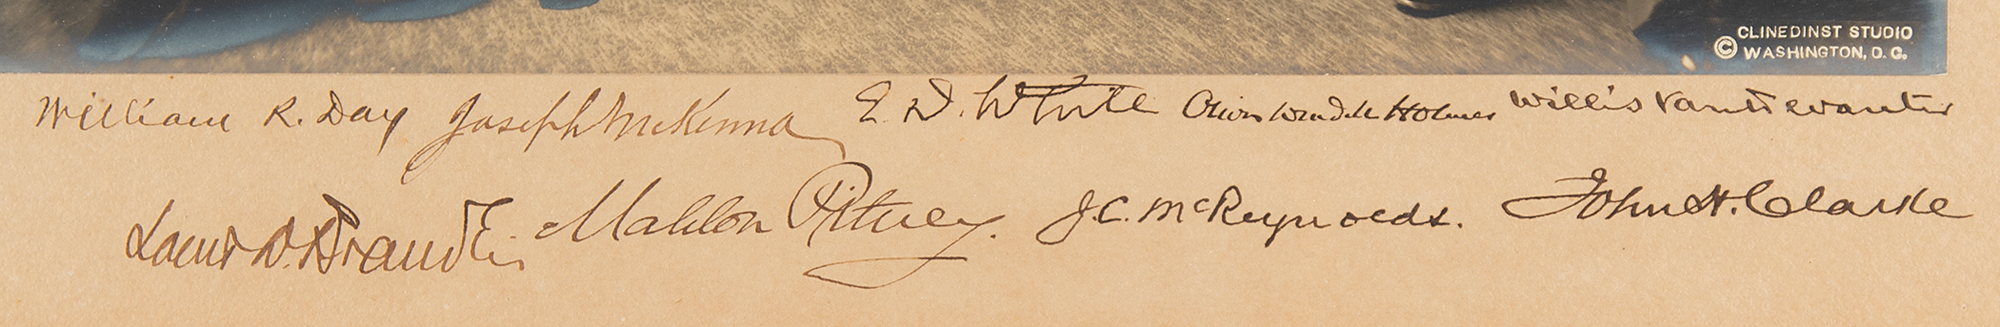 © CLINEDINST STUDIO
WASHINGTON, D.C.
William R. Day Joseph McKenna E. D. White Oliver Wendell Holmes Willis Van Devanter
Louis D. Brandeis Mahlon Pitney. J.C. McReynolds. John H. Clarke